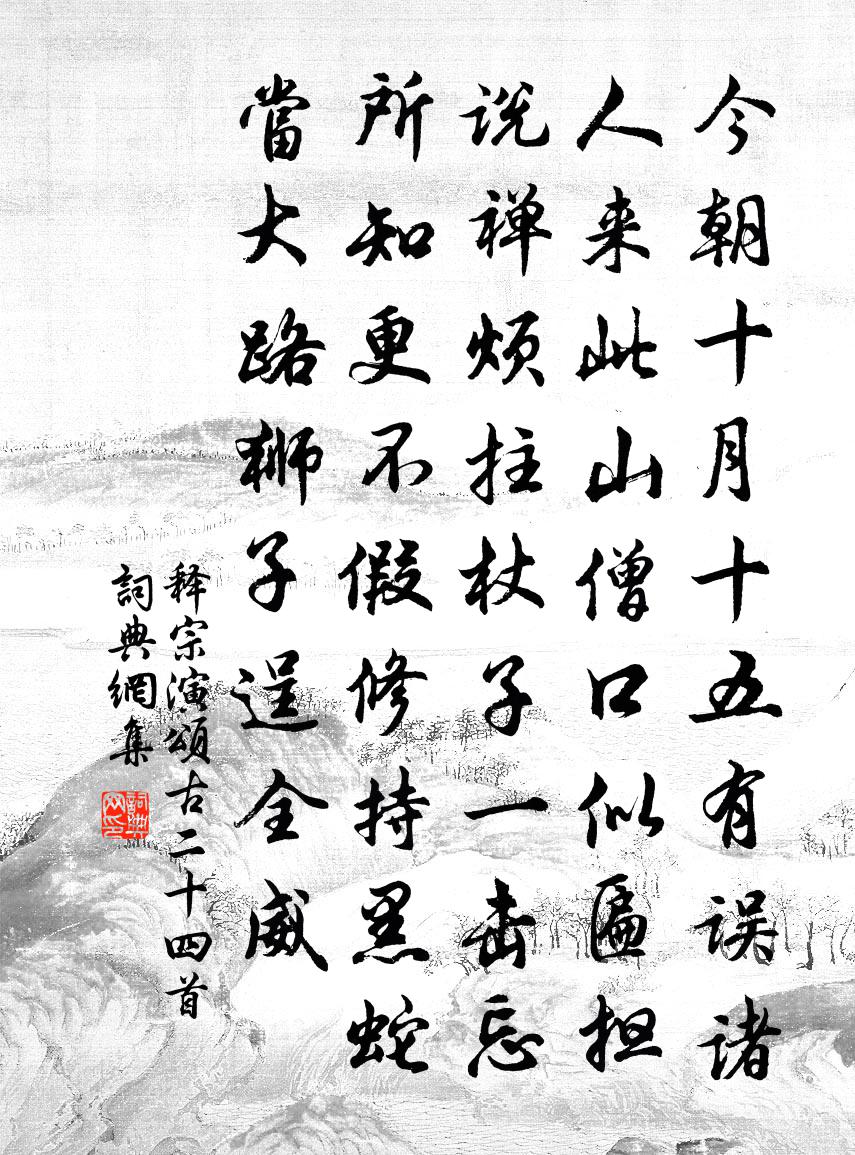 今朝十月十五有误诸
人来此山僧口似匾担
说禅烦拄杖子一击忘
所知更不假修持黑蛇
當大路狮子逞全威
释宗演颂古二十四首
詞典網集
詞典网印